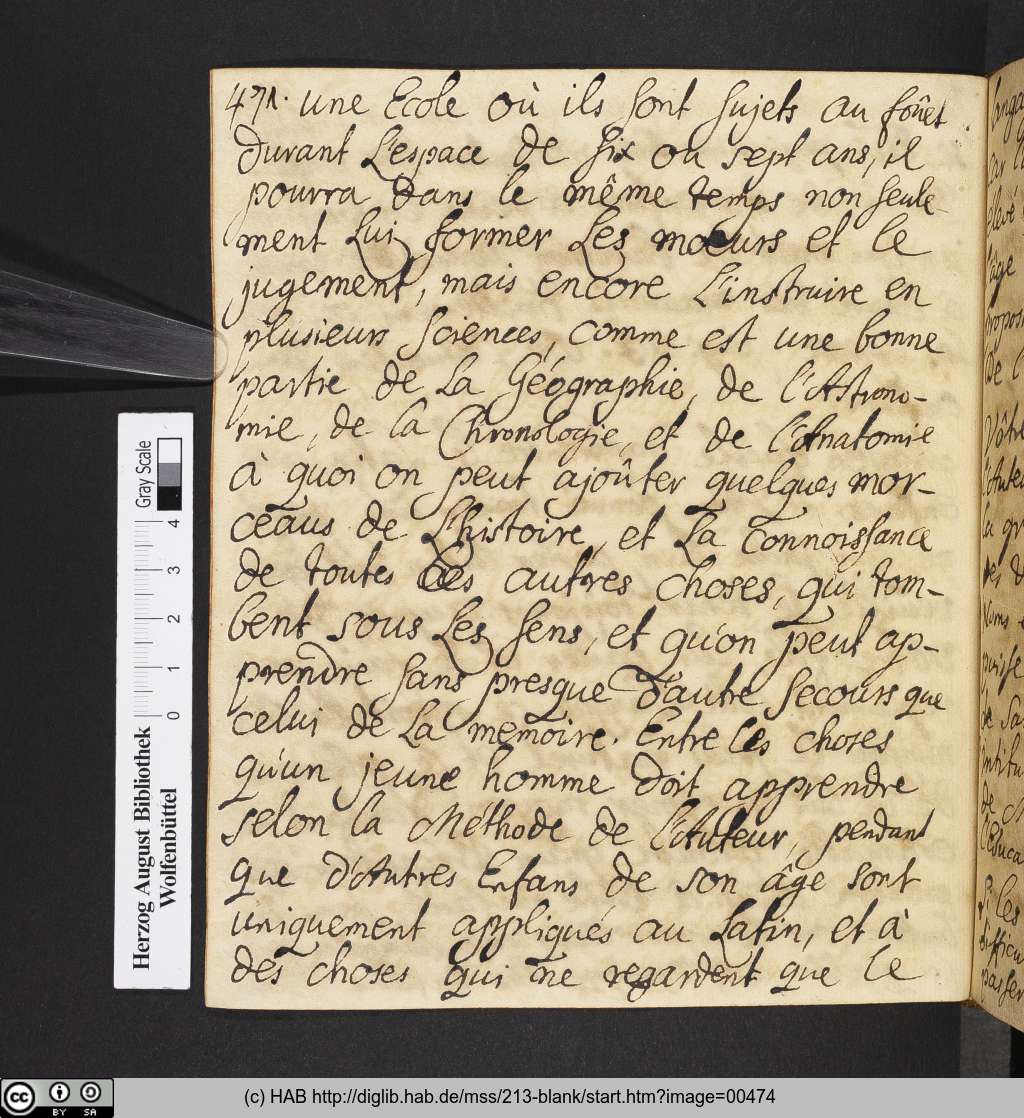 471. une Ecole où ils sont sujets au foüet
durant L'espace de six ou sept ans, il
pourra dans le même temps non seule-
ment Lui former Les moeurs et le
jugement, mais encore L'instruire en
plusieurs Sciences, comme est une bonne
partie de La Géographie, de l'Astrono-
mie, de la Chronologie, et de l'Anatomie
à quoi on peut ajoûter quelques mor-
ceaus de L'histoire, et La connoissance
de toutes les autres choses, qui tom-
bent sous Les sens, et qu'on peut ap-
prendre sans presque d'autre secours que
celui de La memoire. Entre les choses
qu'un jeune homme doit apprendre
selon la Méthode de l'Auteur, pendant
que d'Autres Enfans de son âge sont
uniquement appliqués au Latin, et à
des choses qui ne regardent que le
Gray Scale
0 1 2 3 4
Herzog August Bibliothek
Wolfenbüttel
cc BY SA
(c) HAB http://diglib.hab.de/mss/213-blank/start.htm?image=00474